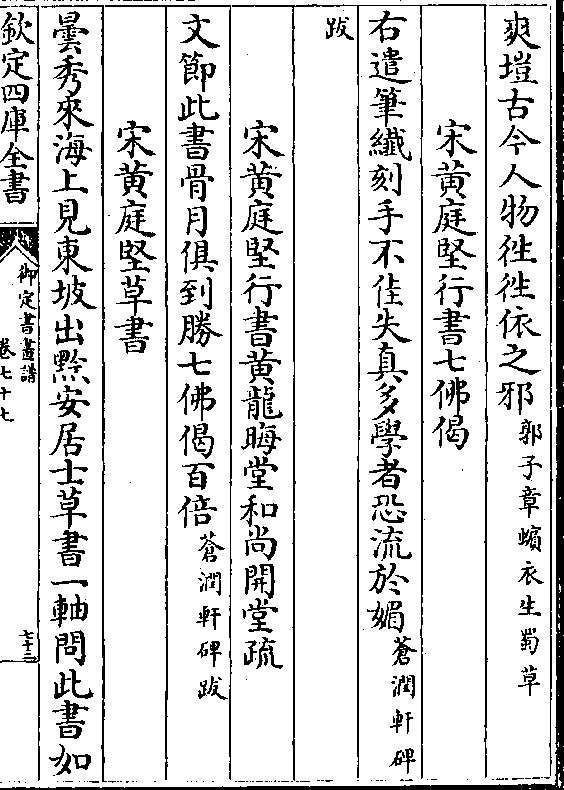 爽塏古今人物徃徃依之邪郭子章蠙衣生蜀草
宋黄庭堅行書七佛偈
右遣筆纎刻手不佳失真多學者恐流於媚蒼潤軒碑
跋
宋黄庭堅行書黄龍晦堂和尚開堂疏
文節此書骨月俱到勝七佛偈百倍蒼潤軒碑跋
宋黄庭堅草書
曇秀來海上見東坡出黔安居士草書一軸問此書如
欽定四庫全書
御定書畫譜
卷七十七
七十三